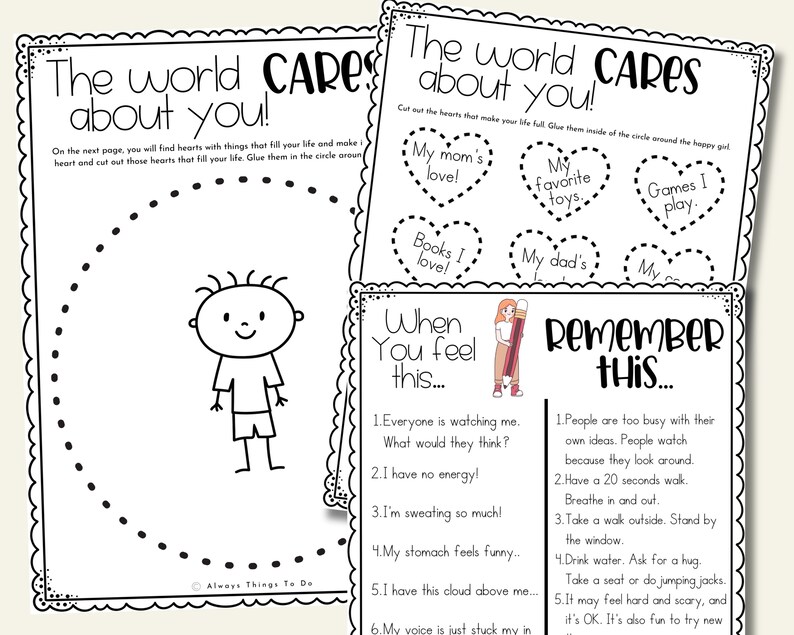 The world CARES
about you!
On the next page, you will find hearts with things that fill your life and make
heart and cut out those hearts that fill your life. Glue them in the circle
© Always Things To Do
The world CARES
about you!
Cut out the hearts that make your life full. Glue them inside of the circle around the happy girl.
My mom's
love!
My
favorite
toys.
Games I
play.
Books I
love!
My dad's
My
When
You feel
this...
REMEMBER
THIS...
1.Everyone is watching me.
What would they think?
2.I have no energy!
3.I'm sweating so much!
4.My stomach feels funny..
5.I have this cloud above me...
6.My voice is just stuck my in
1.People are too busy with their
own ideas. People watch
because they look around.
2.Have a 20 seconds walk.
Breathe in and out.
3.Take a walk outside. Stand by
the window.
4.Drink water. Ask for a hug.
Take a seat or do jumping jacks.
5.It may feel hard and scary, and
it's OK. It's also fun to try new